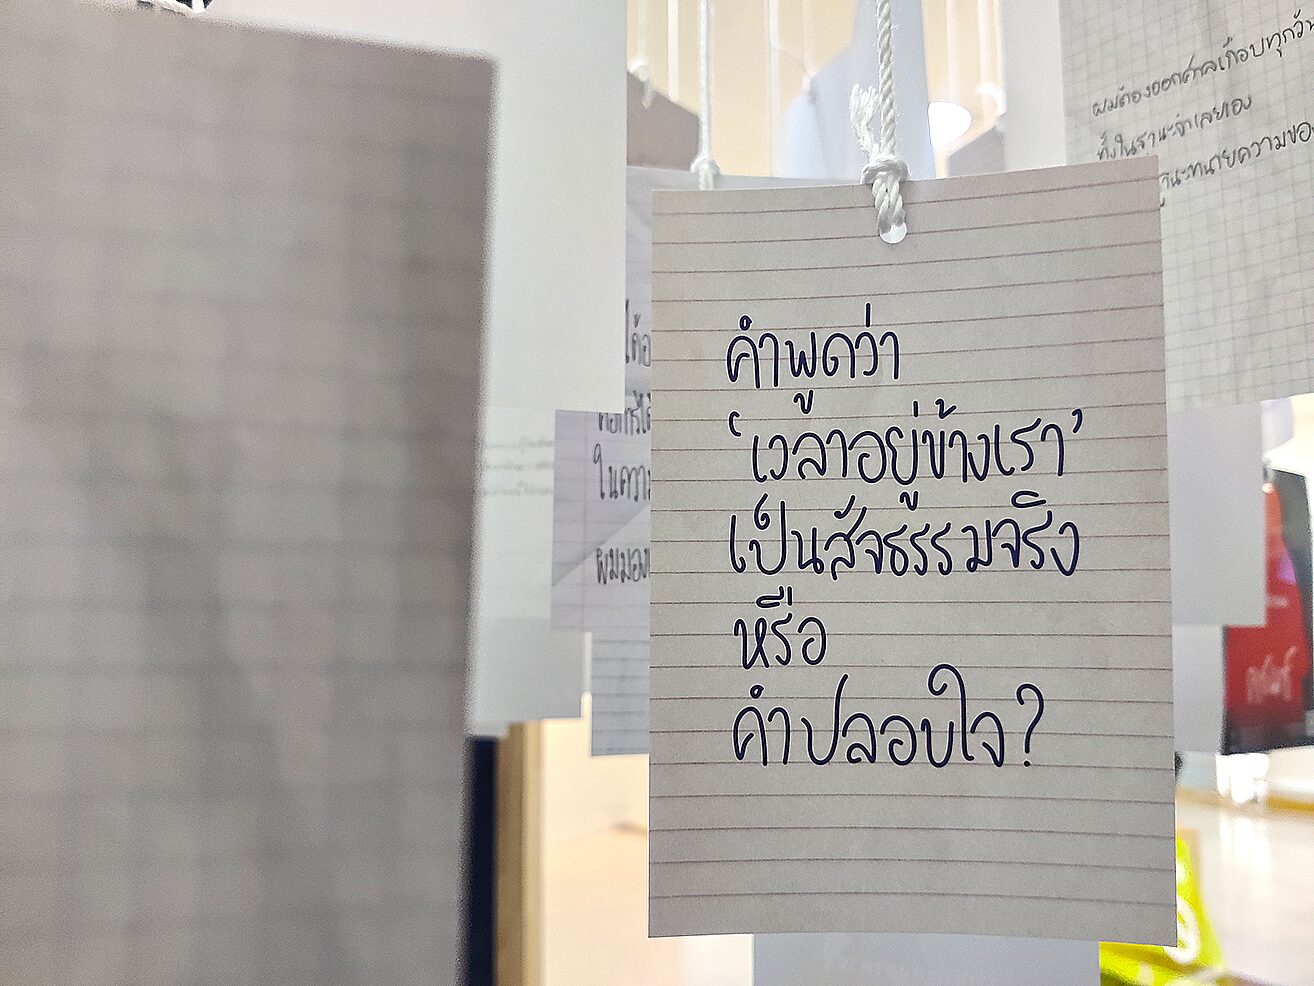 คำพูดว่า
‘เวลาอยู่ข้างเรา’
เป็นสัจธรรมจริง
หรือ
คำปลอบใจ?
ผมต้องออกศาลเกือบทุกวัน
ทั้งในฐานะจำเลยเอง
ทนายความของ
ในความ
ผมมอง